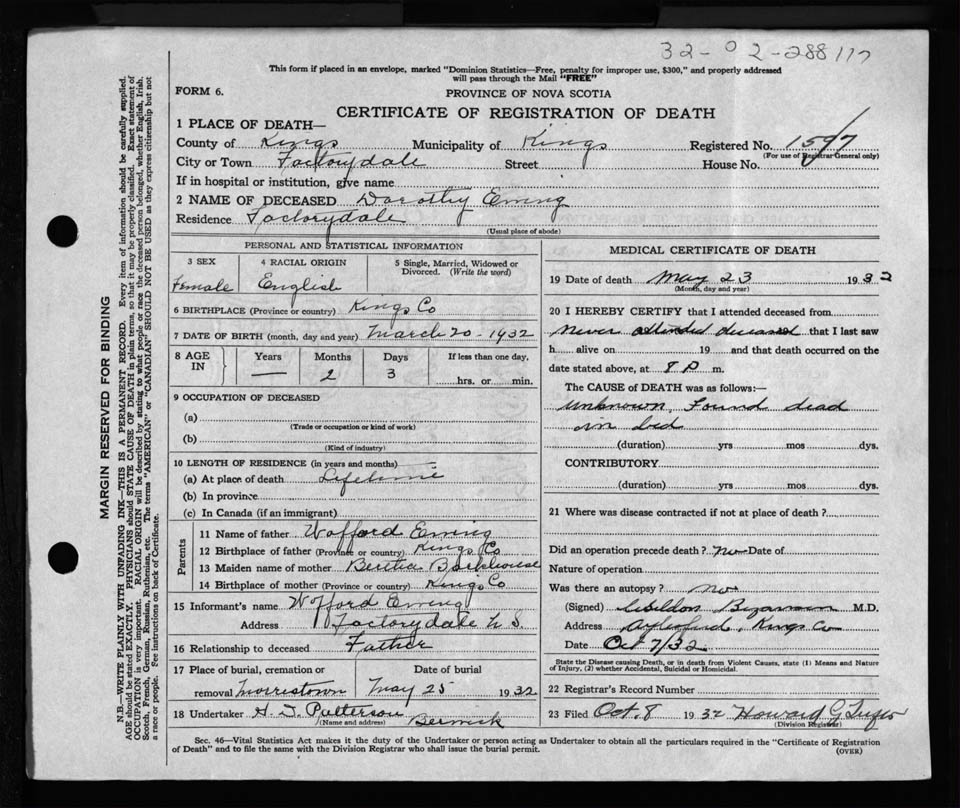 32-02-288117
This form if placed in an envelope, marked "Dominion Statistics—Free, penalty for improper use, $300," and properly addressed
will pass through the Mail "FREE"
FORM 6.
PROVINCE OF NOVA SCOTIA
CERTIFICATE OF REGISTRATION OF DEATH
1 PLACE OF DEATH—
County of Kings Municipality of Kings Registered No. 1597
(For use of Registrar General only)
City or Town Factorydale Street House No.
If in hospital or institution, give name
2 NAME OF DECEASED Dorothy Ewing
Residence Factorydale
(Usual place of abode)
PERSONAL AND STATISTICAL INFORMATION
3 SEX 4 RACIAL ORIGIN 5 Single, Married, Widowed or
Divorced. (Write the word)
Female English
6 BIRTHPLACE (Province or country) Kings Co
7 DATE OF BIRTH (month, day and year) March 20 - 1932
8 AGE IN Years Months Days If less than one day,
— 2 3 hrs. or min.
9 OCCUPATION OF DECEASED
(a)
(Trade or occupation or kind of work)
(b)
(Kind of industry)
10 LENGTH OF RESIDENCE (in years and months)
(a) At place of death Lifetime
(b) In province
(c) In Canada (if an immigrant)
Parents
11 Name of father Wofford Ewing
12 Birthplace of father (Province or country) Kings Co
13 Maiden name of mother Beretha Barkhouse
14 Birthplace of mother (Province or country) Kings Co
15 Informant's name Wofford Ewing
Address Factorydale N S.
16 Relationship to deceased Father
17 Place of burial, cremation or Date of burial
removal Morristown May 25 1932
18 Undertaker H. J. Patterson
(Name and address) Berwick
MEDICAL CERTIFICATE OF DEATH
19 Date of death May 23 1932
(Month, day and year)
20 I HEREBY CERTIFY that I attended deceased from
Never attended deceased that I last saw
h alive on 19 and that death occurred on the
date stated above, at 8 P m.
The CAUSE of DEATH was as follows:—
Unknown, Found dead
in bed
(duration) yrs mos dys.
CONTRIBUTORY
(duration) yrs mos dys.
21 Where was disease contracted if not at place of death?
Did an operation precede death? no Date of
Nature of operation
Was there an autopsy? no
(Signed) M.D.
Address Aylesford, Kings Co
Date Oct 7/32
State the Disease causing Death, or in death from Violent Causes, state (1) Means and Nature
of Injury, (2) whether Accidental, Suicidal or Homicidal.
22 Registrar's Record Number
23 Filed Oct. 8 1932 Howard G
(Division Registrar)
Sec. 46—Vital Statistics Act makes it the duty of the Undertaker or person acting as Undertaker to obtain all the particulars required in the "Certificate of Registration
of Death" and to file the same with the Division Registrar who shall issue the burial permit.
(OVER)
MARGIN RESERVED FOR BINDING
N.B.—WRITE PLAINLY WITH UNFADING INK—THIS IS A PERMANENT RECORD. Every item of information should be carefully supplied.
AGE should be stated EXACTLY. PHYSICIANS should STATE CAUSE OF DEATH in plain terms, so that it may be properly classified. Exact statement of
OCCUPATION is very important. RACIAL ORIGIN will be described by stating to what people or race the deceased person belonged, whether English, Irish,
Scotch, French, German, Russian, Ruthenian, etc. The terms "AMERICAN" or "CANADIAN" SHOULD NOT BE USED as they express citizenship but not
a race or people. See instructions on back of Certificate.